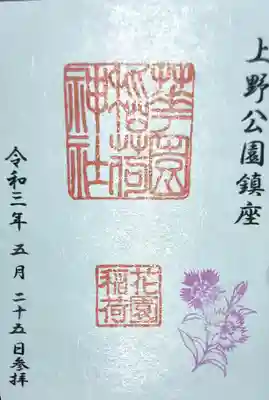 上野公園鎮座
華園
稲荷
神社
花園
稲荷
令和三年 五月 二十五日参拝